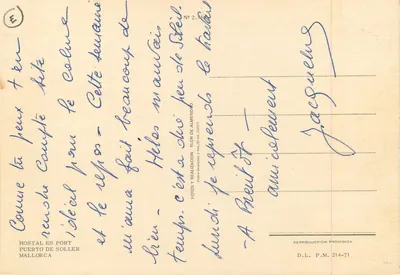 Comme tu peux t'en
rendre compte site
idéal pour le calme
et le repos - Cette semaine
m'aura fait beaucoup de
bien - Hélas mauvais
temps. c'est à dire peu de soleil.
Lundi je reprends le travail
- A Bientôt -
amicalement
Jacqueline
HOSTAL ES PORT
PUERTO DE SOLLER
MALLORCA
FOTOS Y REALIZACION: FLOR DE ALMENDRO
REPRODUCCION PROHIBIDA
D. L. P. M. 214-71